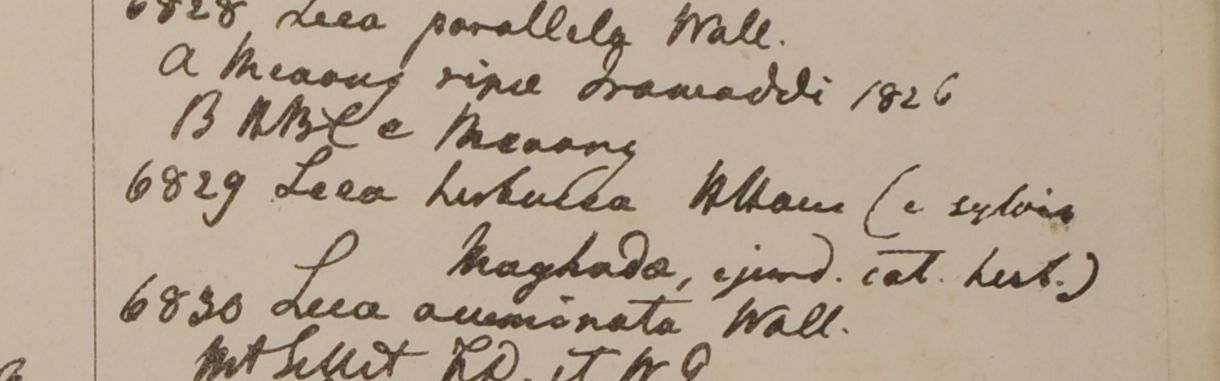 6828 Leea parallela Wall.
A Meaong ripae Irawaddi 1826
B HBC e Meaong
6829 Leea herbacea HHam (e sylvis
Maghada, ejusd. cat. herb.)
6830 Leea acuminata Wall.
Mt Sillet FD. et WG